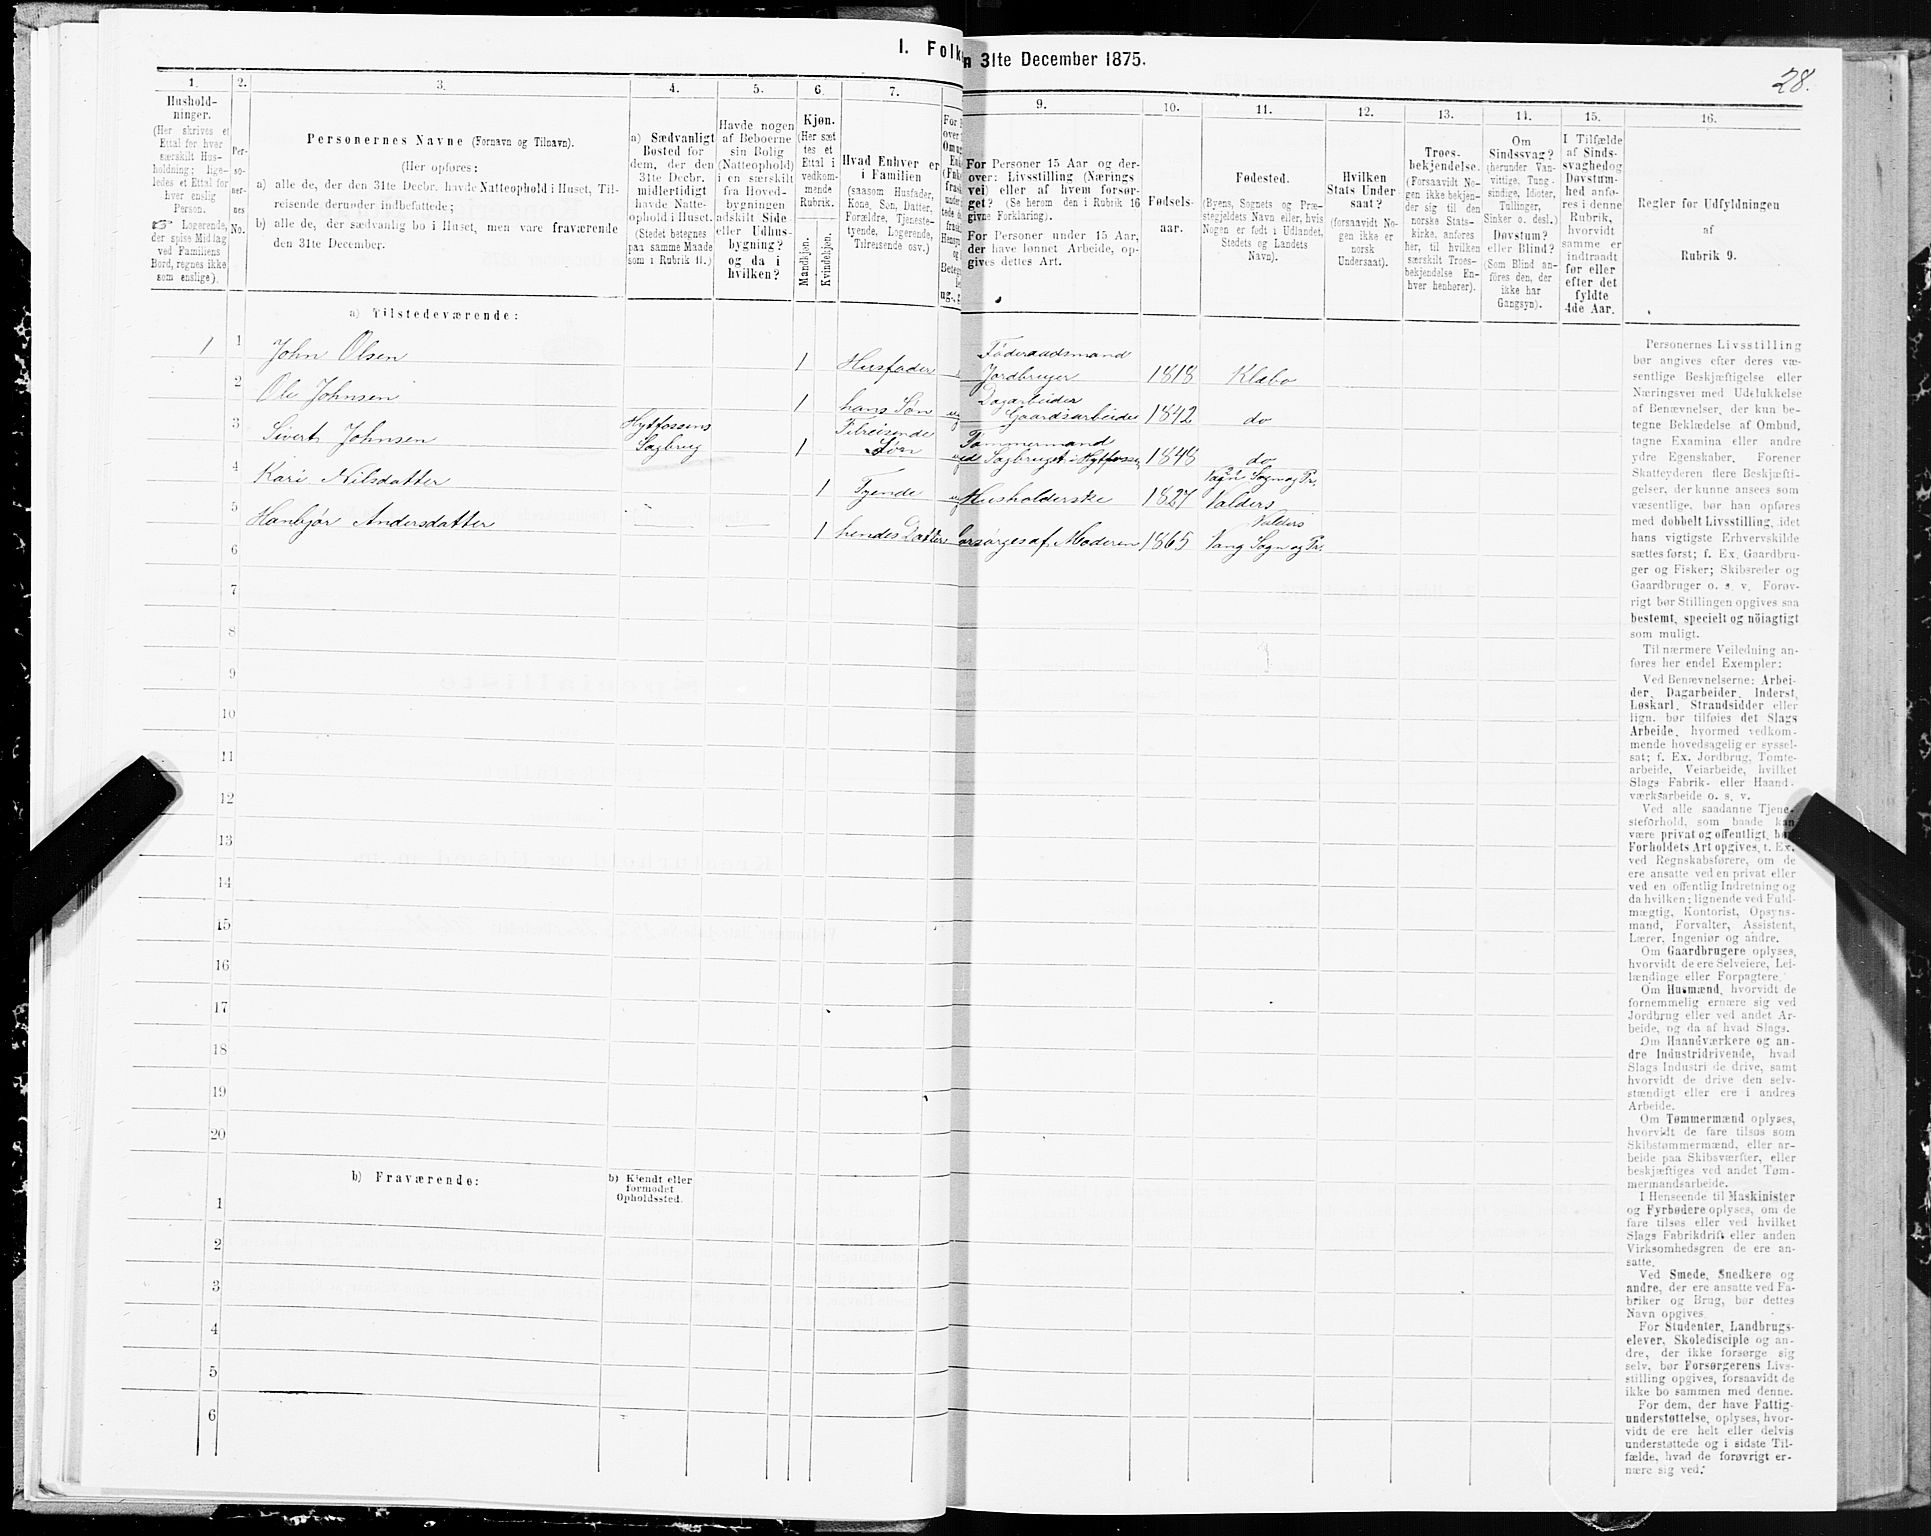 I. Folk
n 31te December 1875.
28.
1.
2.
3.
4.
5.
6.
7.
9.
10.
11.
12.
13.
14.
15.
16.
Hushold-
ninger.
(Her skrives et
Ettal for hver
særskilt Hus-
holdning; lige-
ledes et Ettal for
hver enslig
Person.
Logerende,
der spise Middag
ved Familiens
Bord, regnes ikke
som enslige).
Per-
so-
ner-
nes
No.
Personernes Navne (Fornavn og Tilnavn).
(Her opføres:
a) alle de, der den 31te Decbr. havde Natteophold i Huset, Til-
reisende derunder indbefattede;
b) alle de, der sædvanlig bo i Huset, men vare fraværende
den 31te December.
a) Sædvanligt
Bosted for
dem, der den
31te Decbr.
midlertidigt
havde Natte-
ophold i Huset.
(Stedet betegnes
paa samme Maade
som i Rubrik 11.)
Havde nogen
af Beboerne
sin Bolig
(Natteophold)
i en særskilt
fra Hoved-
bygningen
adskilt Side
eller Udhus-
bygning?
og da i
hvilken?
Kjøn.
(Her sæt-
tes et
Ettal i
vedkom-
mende
Rubrik.
Mandkjøn.
Kvindekjøn.
Hvad Enhver er
i Familien
(saasom Husfader,
Kone, Søn, Datter,
Forældre, Tjeneste-
tyende, Logerende,
Tilreisende osv.)
For Personer 15 Aar og der-
over: Livsstilling (Nærings
vei) eller af hvem forsør-
get? (Se herom den i Rubrik 16
givne Forklaring).
For Personer under 15 Aar,
der have lønnet Arbeide, op-
gives dettes Art.
Fødsels-
aar.
Fødested.
(Byens, Sognets og Præ-
stegjeldets Navn eller, hvis
Nogen er født i Udlandet,
Stedets og Landets
Navn).
Hvilken
Stats Under
saat?
(forsaavidt No-
gen ikke er
norsk
Undersaat).
Troes-
bekjendelse.
(Forsaavidt No-
gen ikke bekjen-
der sig til den
norske Stats-
kirke, anføres
her, til hvilken
særskilt Troes-
bekjendelse En-
hver henhører).
Om
Sindssvag?
(herunder Van-
vittige, Tung-
sindige, Idioter,
Tullinger,
Sinker o. desl.)
Døvstum?
eller Blind?
(Som Blind an-
føres den, der
ikke har
Gangsyn).
I Tilfælde
af Sinds-
svaghed og
Døvstum-
hed anfø-
res i denne
Rubrik,
hvorvidt
samme er
indtraadt
før eller
efter det
fyldte
4de Aar.
Regler for Udfyldningen
af
Rubrik 9.
a) Tilstedeværende:
1 1 John Olsen 1 Husfader Føderaadsmand
Jordbruger 1818 Klæbo
2 Ole Johnsen 1 hans Søn ug Dagarbeider
Gaardsarbeide 1842 do
3 Sivert Johnsen Hytfossens
Sagbrug 1 Tilreisende
Søn Tømmermand
ved Sagbruget i Hytfossen 1848 do
4 Kari Nilsdatter 1 Tyende ug Husholderske 1827 Vang Sogn og Pr.
Valders
5 Hanbjør Andersdatter 1 hendes Datter forsørges af Moderen 1865 Valders
Vang Sogn og Pr.
6
7
8
9
10
11
12
13
14
15
16
17
18
19
20
b) Fraværende:
b) Kjendt eller
formodet
Opholdssted.
1
2
3
4
5
6
Personernes Livsstilling
bør angives efter deres væ-
sentlige Beskjæftigelse eller
Næringsvei med Udelukkelse
af Benævnelser, der kun be-
tegne Beklædelse af Ombud,
tagne Examina eller andre
ydre Egenskaber. Forener
Skatteyderen flere Beskjæfti-
gelser, der kunne ansees som
væsentlige, bør han opføres
med dobbelt Livsstilling, idet
hans vigtigste Erhvervskilde
sættes først; f. Ex. Gaardbru-
ger og Fisker; Skibsreder og
Gaardbruger o. s. v. Forøv-
rigt bør Stillingen opgives saa
bestemt, specielt og nöiagtigt
som muligt.
Til nærmere Veiledning an-
føres her endel Exempler:
Ved Benævnelserne: Arbei-
der, Dagarbeider, Inderst,
Løskarl, Strandsidder eller
lign. bør tilføies det Slags
Arbeide, hvormed vedkom-
mende hovedsagelig er syssel-
sat; f. Ex. Jordbrug, Tomte-
arbeide, Veiarbeide, hvilket
Slags Fabrik- eller Haand-
værksarbeide o. s. v.
Ved alle saadanne Tjene-
steforhold, som baade kan
være privat og offentligt, bør
Forholdets Art opgives, t. Ex.
ved Regnskabsførere, om de
ere ansatte ved en privat eller
ved en offentlig Indretning og
da hvilken; lignende ved Fuld-
mægtig, Kontorist, Opsyns-
mand, Forvalter, Assistent,
Lærer, Ingeniør og andre.
Om Gaardbrugere oplyses,
hvorvidt de ere Selveiere, Lei-
lændinge eller Forpagtere.
Om Husmænd, hvorvidt de
fornemmelig ernære sig ved
Jordbrug eller ved andet Ar-
beide, og da af hvad Slags.
Om Haandværkere og an-
dre Industridrivende, hvad
Slags Industri de drive, samt
hvorvidt de drive den selv-
stændigt eller ere i andres
Arbeide.
Om Tømmermænd oplyses,
hvorvidt de fare tilsøs som
Skibstømmermænd, eller ar-
beide paa Skibsværfter, eller
beskjæftiges ved andet Tøm-
mermandsarbeide.
I Henseende til Maskinister
og Fyrbødere oplyses, om de
fare tilsøs eller ved hvilket
Slags Fabrikdrift eller anden
Virksomhedsgren de ere an-
satte.
Ved Smede, Snedkere og
andre, der ere ansatte ved Fa-
briker og Brug, bør dettes
Navn opgives.
For Studenter, Landbrugs-
elever, Skoledisciple og an-
dre, der ikke forsørge sig
selv, bør Forsørgerens Livs-
stilling opgives, forsaavidt de
ikke bo sammen med denne.
For dem, der have Fattig-
understøttelse, oplyses, hvor-
vidt de ere helt eller delvis
understøttede og i sidste Til-
fælde, hvad de forøvrigt er-
nære sig ved.